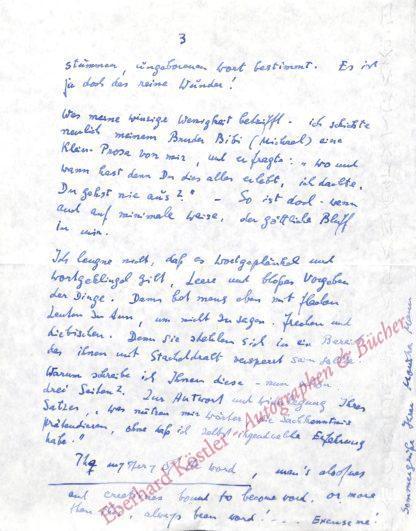 3
stummen, ungeborenen Wort bestimmt. Es ist
ja doch das reine Wunder!
Was meine winzige Wenigkeit betrifft. Ich schickte
neulich meinem Bruder Bibi (Michael) eine
kleine Prosa von mir, und er fragte: "Wo und
wann hast denn Du dies alles erlebt, ich dachte,
Du gehst nie aus?" – So ist doch – wenn
auch auf minimale Weise, der göttliche Bluff
in mir.
Ich leugne nicht, daß es Wortgeplänkel und
Wortgeklingel gibt, Leere und bloßes Vorgeben
der Dinge. Dann hat mans eben mit flachen
Leuten zu tun, um nicht zu sagen: frechen und
diebischen. Denn sie stehlen sich in ein Bereich
das ihnen mit Stacheldraht versperrt sein sollte.
Warum schreibe ich Ihnen diese – nun schon
drei Seiten? Zur Antwort und Ihres
Satzes, "was nützen mir Wörter die Sachkenntnis
prätendieren, ohne daß ich selbst irgendwelche Erfahrung
habe."
The mystery of the word, man's
and creatures bound to become word, or more
than that, always been word! ... Excuse me!
Eberhard Köstler - Autographen & Bücher
Sommergrüße Ihre Monika Mann